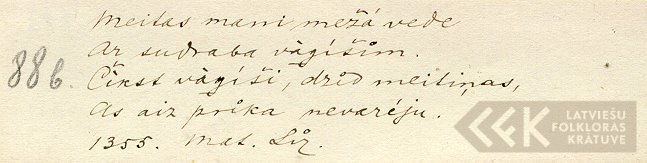 Meitas mani mežá vede
Ar sudraba vàgíšim.
886. Čikst vàgíši, dzìd meitiņas,
As aiz príka nevaréju.
1355. Mat. Líz.
LATVIEŠU
FOLKLORAS
KRĀTUVE